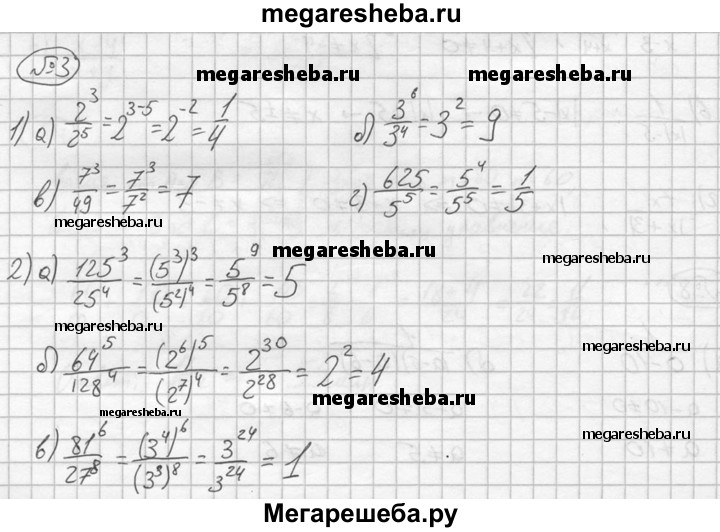 megaresheba.ru
№3
megaresheba.ru megaresheba.ru
1) а) 2³/2⁵ = 2³⁻⁵ = 2⁻² = 1/4 б) 3⁶/3⁴ = 3² = 9
в) 7³/49 = 7³/7² = 7 г) 625/5⁵ = 5⁴/5⁵ = 1/5
megaresheba.ru
megaresheba.ru
2) а) 125³/25⁴ = (5³)³/(5²)⁴ = 5⁹/5⁸ = 5
megaresheba.ru
megaresheba.ru
megaresheba.ru
б) 64⁵/128⁴ = (2⁶)⁵/(2⁷)⁴ = 2³⁰/2²⁸ = 2² = 4
megaresheba.ru
megaresheba.ru
megaresheba.ru
в) 81⁶/27⁸ = (3⁴)⁶/(3³)⁸ = 3²⁴/3²⁴ = 1
Мегарешеба.ру